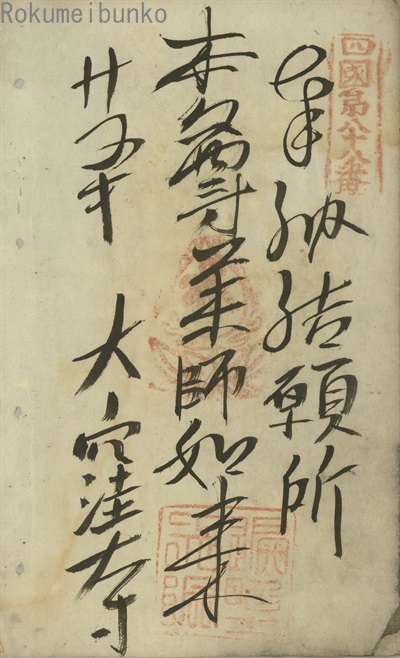 Rokumeibunko
四國第八十八番
奉納結願所
本尊薬師如来
大窪寺